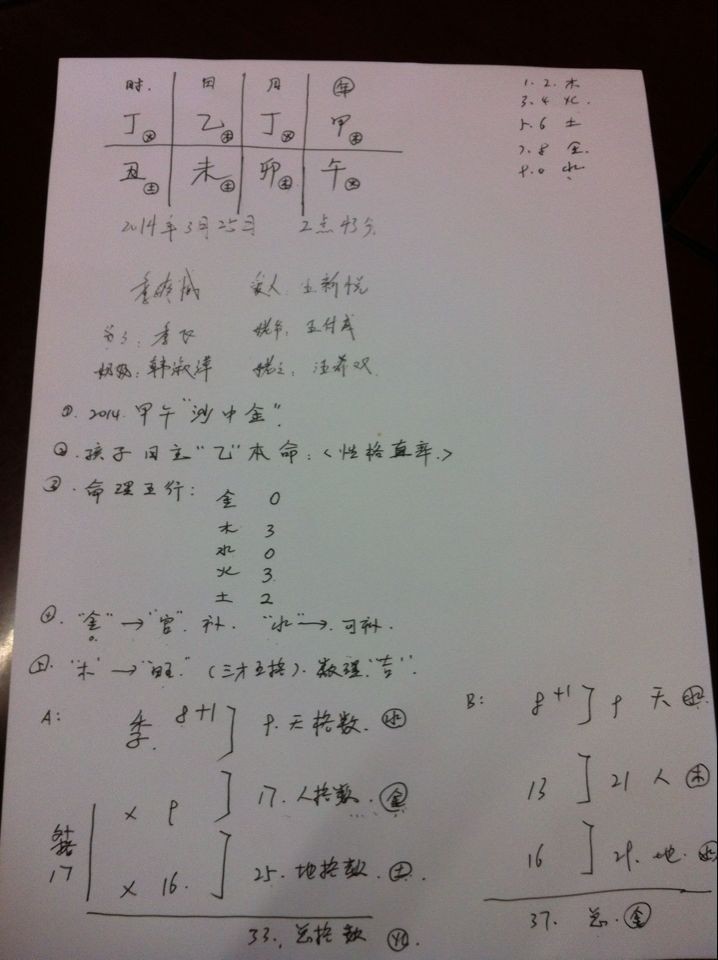 时 日 月 年
丁火 乙木 丁火 甲木
丑土 未土 卯 午火
2014年3月25日 2点43分
季 王新悦
: 季 姥爷: 王付
奶奶: 韩淑 :
①. 2014. 甲午"沙中金".
②. 孩子日主"乙"本命: <性格直率.>
③. 命理五行:
金 0
木 3
水 0
火 3
土 2
④. "金"→"官". 补. "水"→. 可补.
五. "木"→"旺." (三才五格). 数理"吉".
A:
季 8+1 ] 9. 天格数. 水
x 9 ] 17. 人格数. 金
外格 17
x 16. ] 25. 地格数. 土.
33. 总格数 火.
1. 2. 木
3. 4 火.
5. 6 土
7. 8 金.
9. 0 水
B: 8+1 ] 9 天 水
13 ] 21 人 木
16 ] 29. 地. 水
37. 总. 金